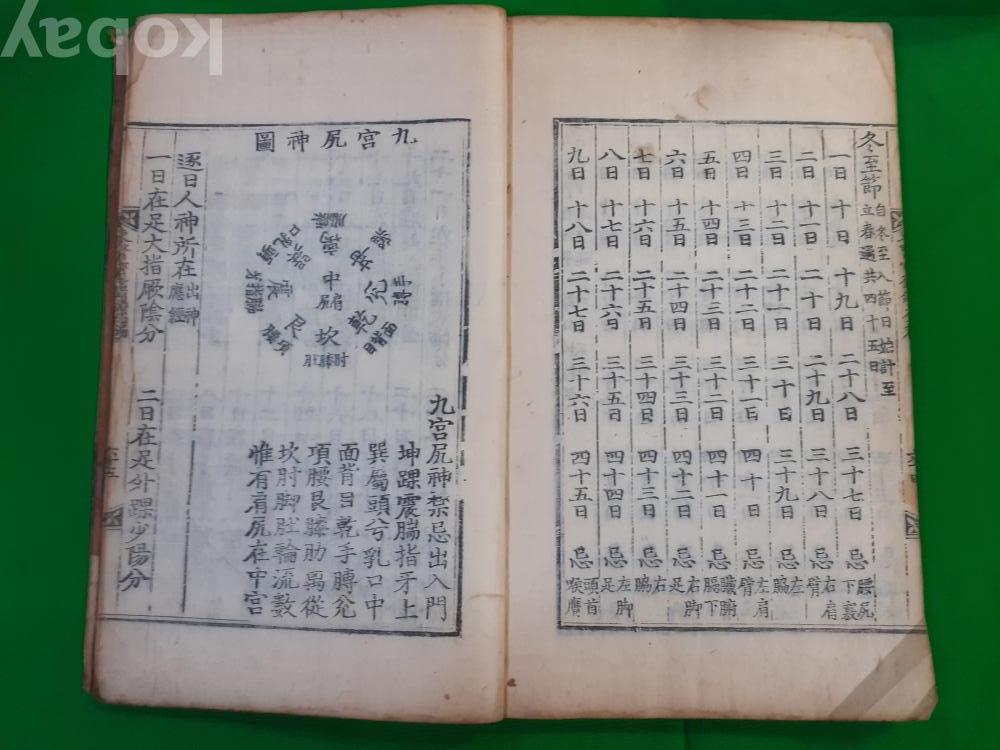 冬至節 自冬至入節日始計至
立春過共四十五日
一日 十日 十九日 二十八日 三十七日 忌 腰尻下竅
二日 十一日 二十日 二十九日 三十八日 忌 右肩臂
三日 十二日 二十一日 三十日 三十九日 忌 左脇
四日 十三日 二十二日 三十一日 四十日 忌 左肩臂
五日 十四日 二十三日 三十二日 四十一日 忌 臟腑膈下
六日 十五日 二十四日 三十三日 四十二日 忌 右脚足
七日 十六日 二十五日 三十四日 四十三日 忌 右脇
八日 十七日 二十六日 三十五日 四十四日 忌 左脚足
九日 十八日 二十七日 三十六日 四十五日 忌 頭首喉膺
九宮尻神圖
中肩尻
坎肘脚肚
艮項腰
震
坤踝
乾面背目
兊手膊
九宮尻神禁忌出入門
坤踝震腨指牙上
巽屬頭兮乳口中
面背目乾手膊兊
項腰艮膝肋离從
坎肘脚肚輪流數
惟有肩尻在中宮
逐日人神所在 出神應經
一日在足大指厥陰分 二日在足外踝少陽分
kobay